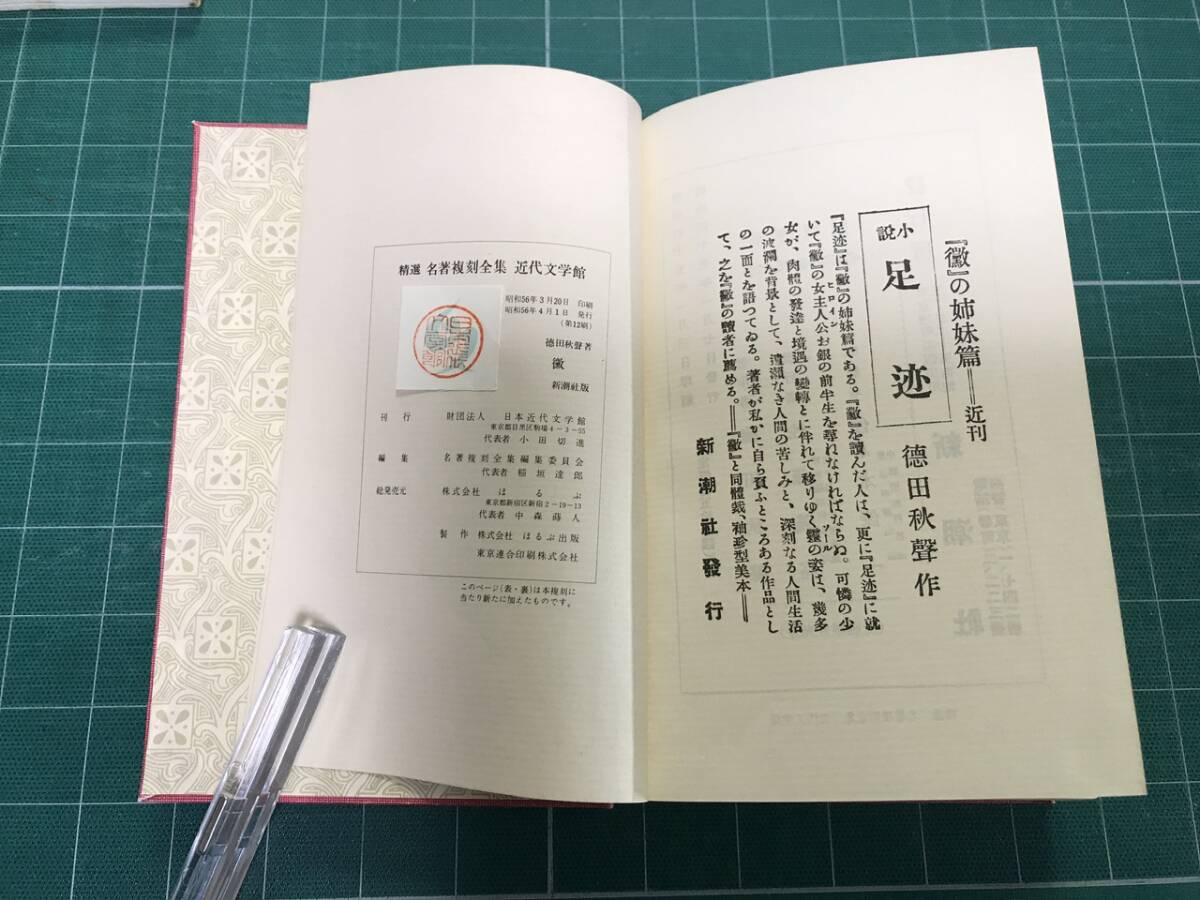 精選 名著複刻全集 近代文学館
昭和56年3月20日 印刷
昭和56年4月1日 発行
(第12刷)
徳田秋聲著
黴
新潮社版
刊行 財団法人 日本近代文学館
東京都目黒区駒場4-3-55
代表者 小田切進
編集 名著複刻全集編集委員会
代表者 稲垣達郎
総発売元 株式会社 ほるぷ
東京都新宿区新宿2-19-13
代表者 中森蒔人
製作 株式会社 ほるぷ出版
東京連合印刷株式会社
このページ(表・裏)は本複刻に
当たり新たに加えたものです。
『黴』の姉妹篇═近刊
小説 足迹 德田秋聲作
『足迹』は『黴』の姉妹篇である。『黴』を讀んだ人は、更に『足迹』に就
いて『黴』の女主人公お銀の前半生を尋ねなければならぬ。可憐の少
ヒロイン
女が、肉體の發達と境遇の變轉とに伴れて移りゆく靈の姿は、幾多
ソール
の波瀾を背景として、遣瀬なき人間の苦しみと、深刻なる人間生活
の一面とを語つてゐる。著者が私かに自ら負ふところある作品とし
て、之を『黴』の讀者に薦める。═『黴』と同體裁、袖珍型美本═
新潮社發行